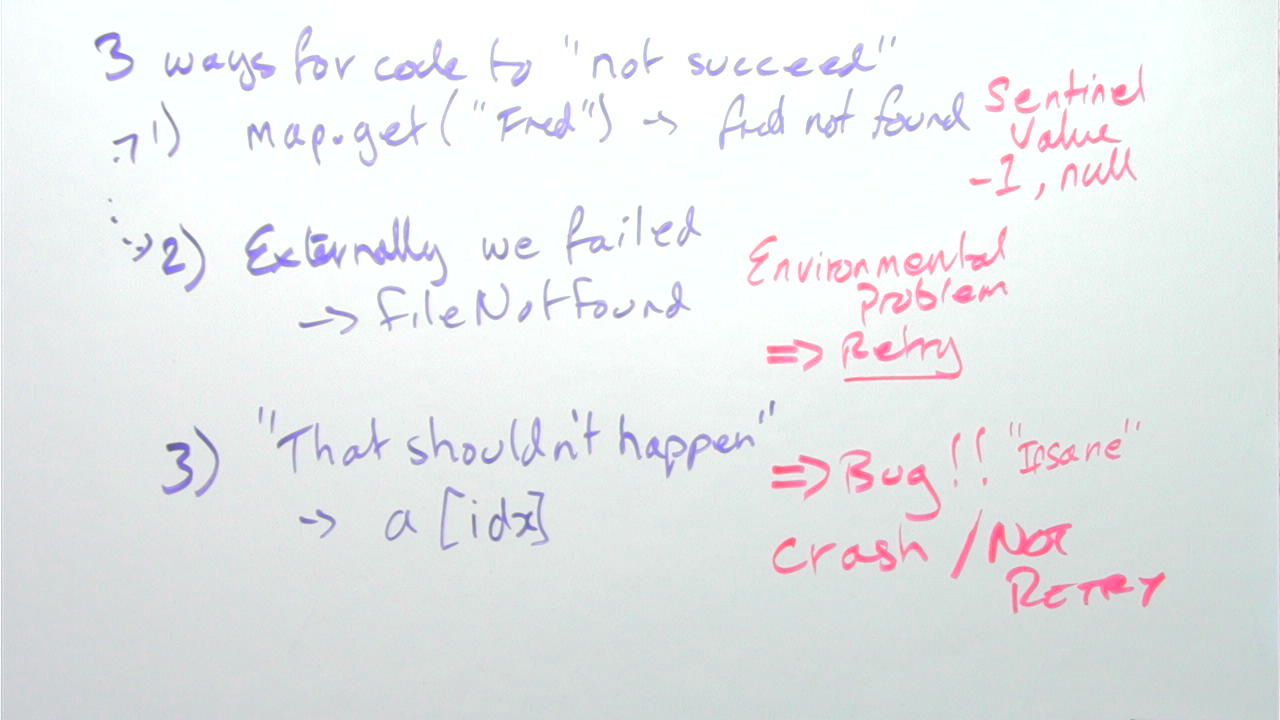 3 ways for code to "not succeed"
1) map.get("Fred") → fred not found
Sentinel
Value
-1, null
2) Externally we failed
→ fileNotFound
Environmental
Problem
=> Retry
3) "That shouldn't happen"
→ a [idx]
=> Bug!! "Insane"
Crash / NOT
RETRY